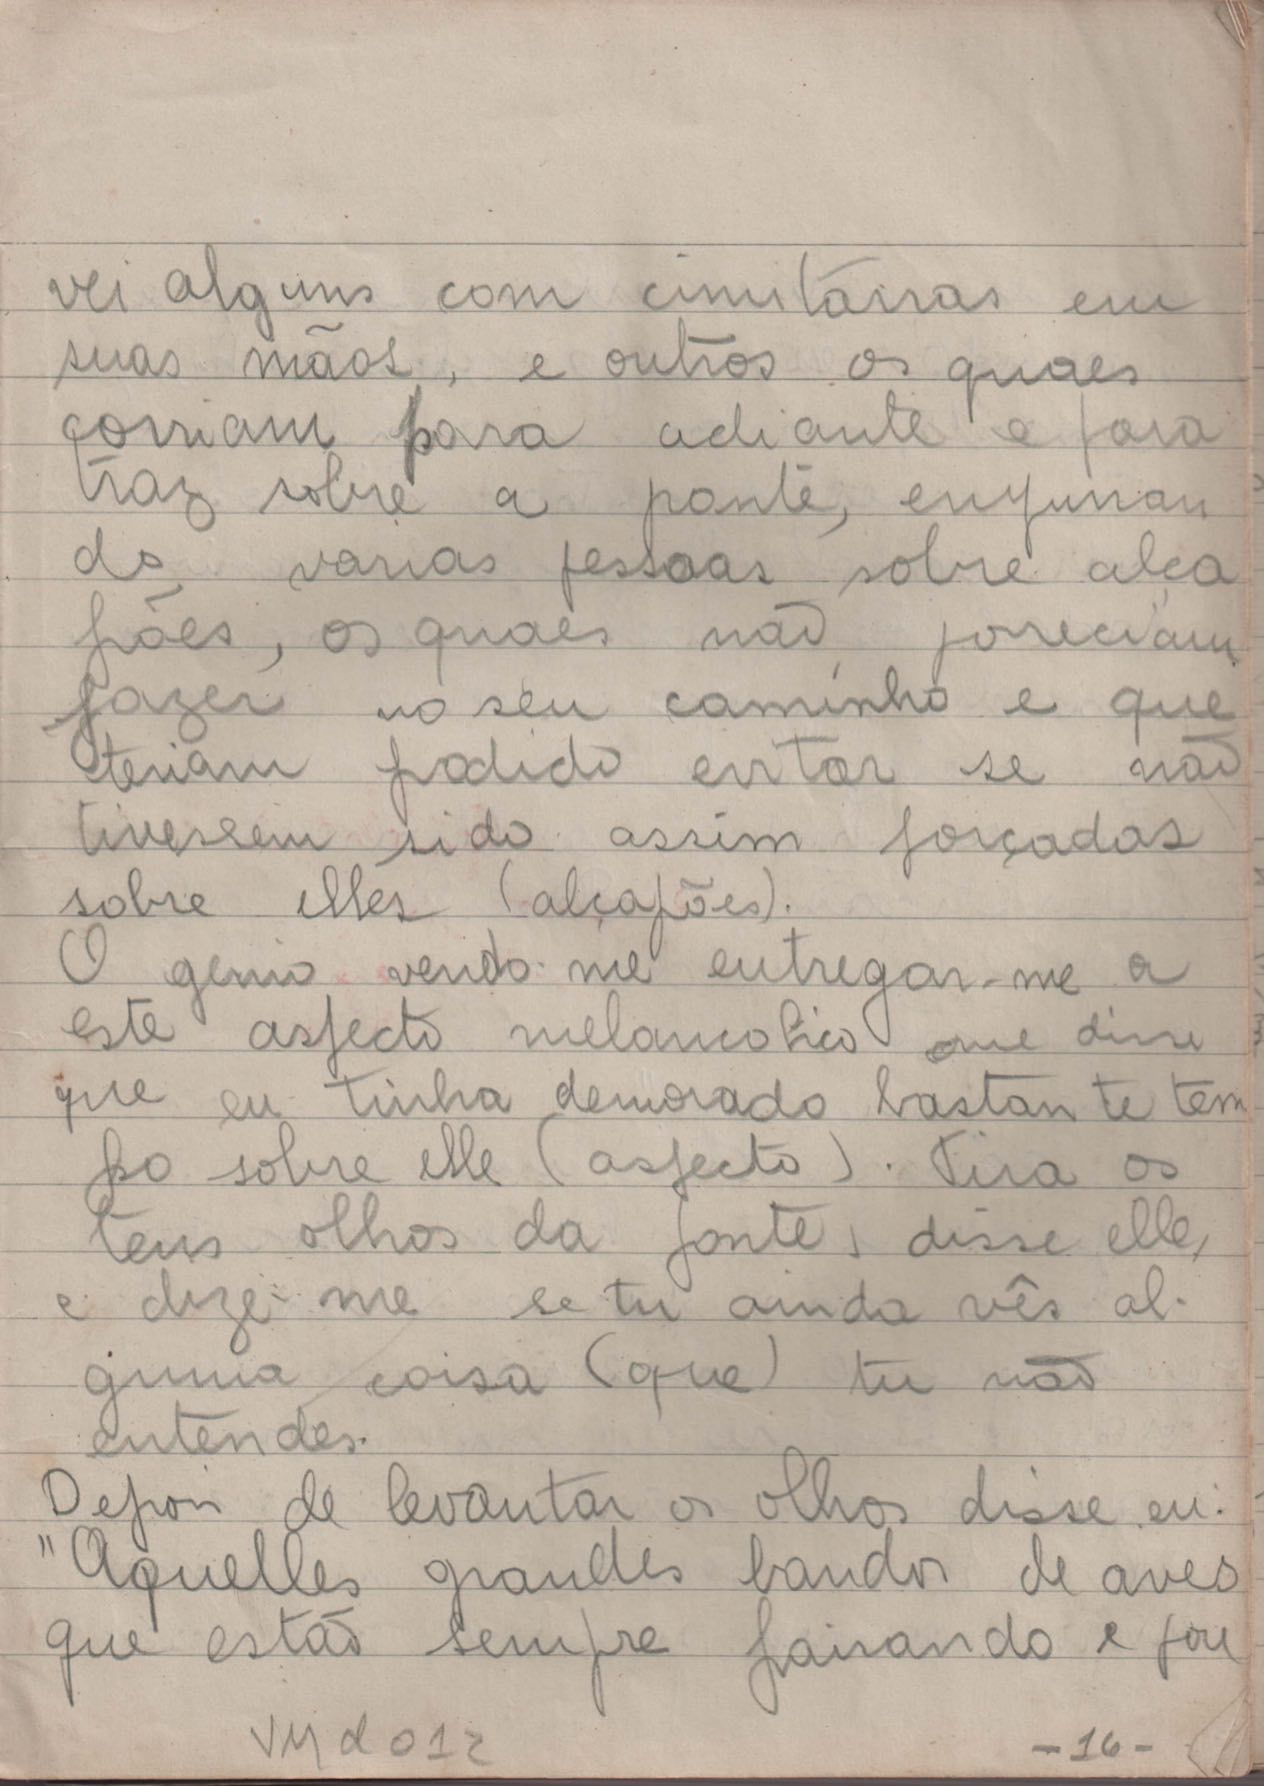 vei alguns com cimitarras em
suas mãos, e outros os quaes
corriam para adiante e para
traz sobre a ponte, empurran
do varias pessoas sobre alça
pões, os quaes não pareciam
fazer no seu caminho e que
teriam podido evitar se não
tivessem sido assim forçadas
sobre elles (alçapões).
O genio vendo-me entregar-me a
este aspecto melancolico me disse
que eu tinha demorado bastante tem
po sobre elle (aspecto). Tira os
teus olhos da ponte, disse elle,
e dize-me se tu ainda vês al-
guma coisa (que) tu não
entendes.
Depois de levantar os olhos disse eu:
"Aquelles grandes bandos de aves
que estão sempre pairando e pou
VMd012
-16-